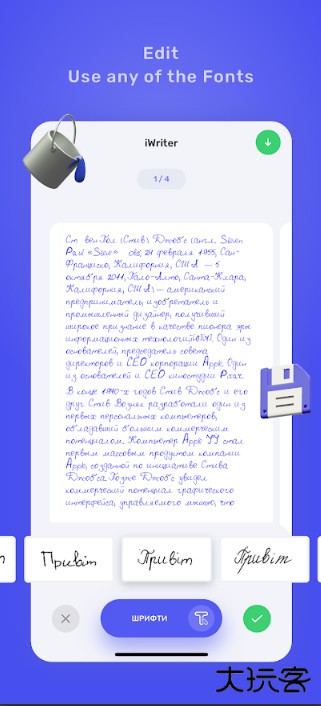 Edit
Use any of the Fonts
iWriter
1/4
Ст вен Пол (Стив) Джобс (англ. Steven
Paul «Steve» Jobs, 24 февраля 1955, Сан-
Франциско, Калифорния, США — 5
октября 2011, Пало-Алто, Санта-Клара,
Калифорния, США) — американский
предприниматель, изобретатель и
промышленный дизайнер, получивший
широкое признание в качестве пионера эры
информационных технологий. Один из
основателей, председатель совета
директоров и CEO корпорации Apple. Один
из основателей и CEO киностудии Pixar.
В конце 1970-х годов Стив Джобс и его
друг Стив Возняк разработали один из
первых персональных компьютеров,
обладавший большим коммерческим
потенциалом. Компьютер Apple II стал
первым массовым продуктом компании
Apple, созданной по инициативе Стива
Джобса. Позже Джобс увидел
коммерческий потенциал графического
интерфейса, управляемого мышью, что
Привіт
Привіт
Привіт
ШРИФТИ
大玩客